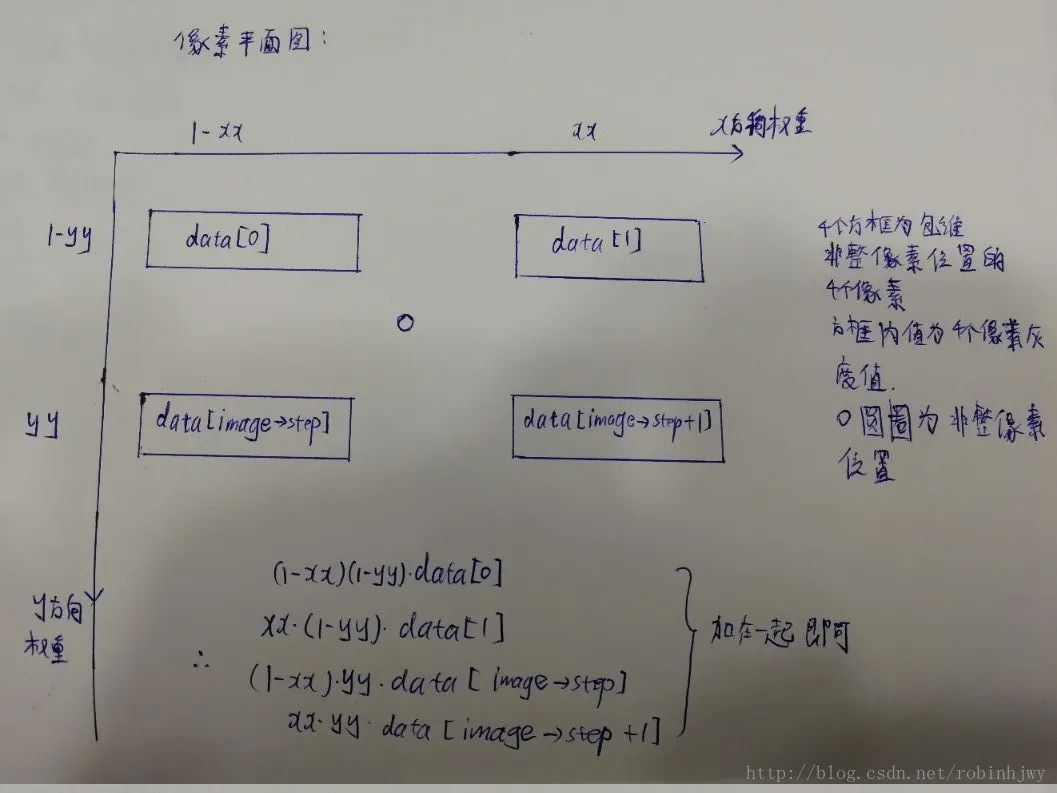 像素平面图:
1-xx
xx
x方向权重
1-yy
data[0]
data[1]
4个方框为包维
非整像素位置的
4个像素
方框内值为4个像素灰
度值.
O圆圈为非整像素
位置
yy
data[image→step]
data[image→step+1]
y方向
权重
(1-xx)(1-yy)·data[0]
xx·(1-yy)·data[1]
∴
(1-xx)·yy·data[image→step]
xx·yy·data[image→step+1]
加在一起即可
http://blog.csdn.net/robinhjwy